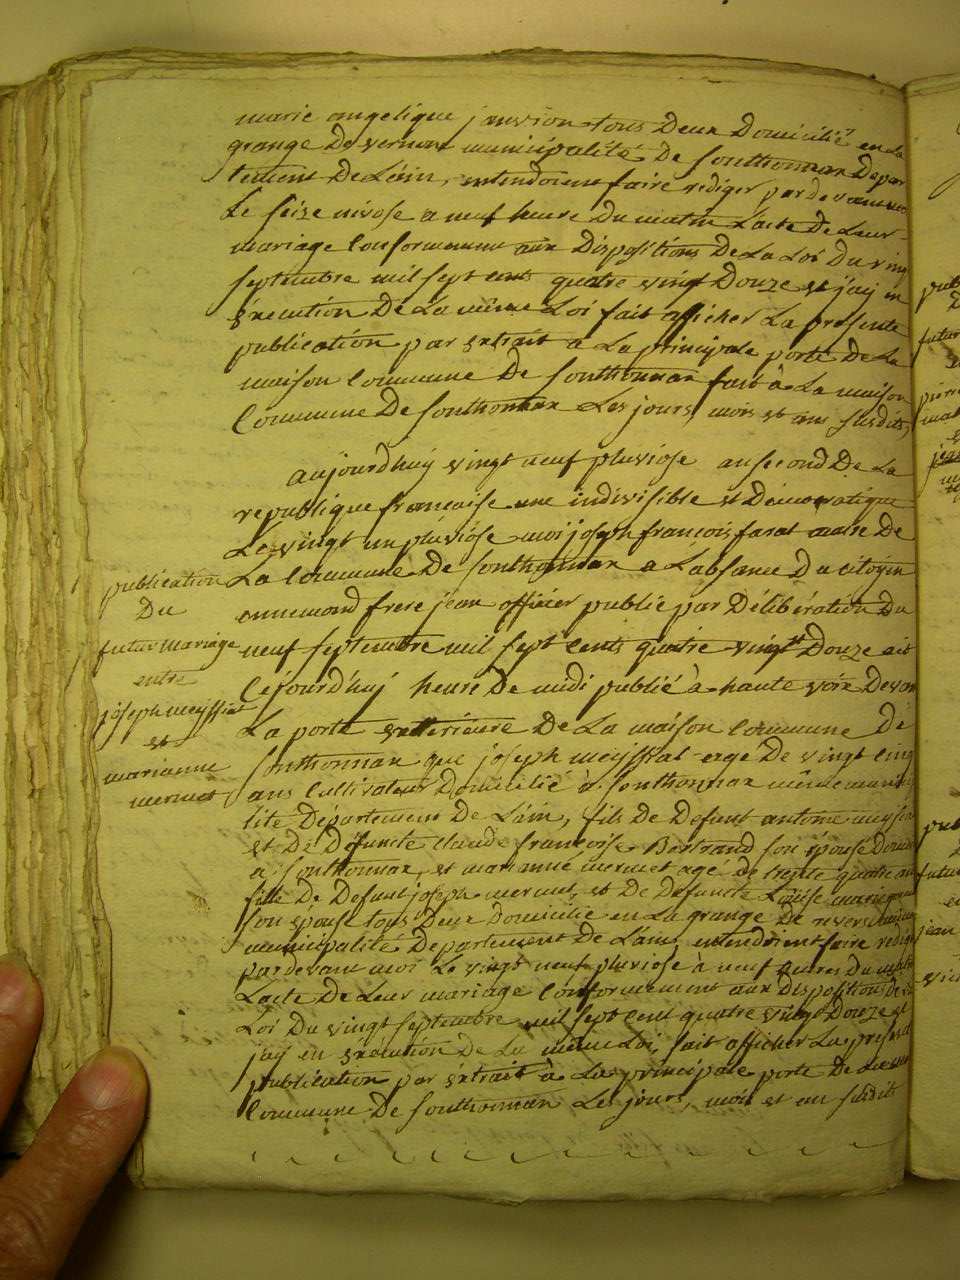 marie angelique janvion tous deux domicilié en la
grange de vernon municipalité de sonthonnax depar
tement de Lain, intendoient faire rediger par devant moi
Le seize nivose a neuf heure du matin Lacte de Leur
mariage Conformement aux dispositions de La Loi du ving
septembre mil sept cents quatre vingt douze et jay en
éxécution de La même Loi fait afficher La presente
publication par extrait a La principale porte de La
maison Commune de sonthonnax fait à La maison
Commune de sonthonnax Les jours, mois et an susdits,
aujourdhuy vingt neuf pluviose an second de La
republique francoise une indivisible et démocratique
Le vingt un pluviose moi joseph francois maire de
La Commune de sonthonnax a Labsance du citoyin
annemond frere jean officier public par délibération du
neuf septembre mil sept Cents quatre vingt douze ait
Cejourdhuj heure de midi publié à haute voix devan
La porte extérieure de La maison Commune de
sonthonnax que joseph meyssiat age de vingt cinq
ans Cultivateur domicilié à sonthonnax même munici
lité département de Lain, fils de defunt antoine meyssia
et de défuncte claude francoise Bertrand son épouse domici
a sonthonnax, et marianne mermet agé de trente quatre an
fille de defunt joseph mermet, et de defuncte Louise
son epouse tous deux domicilié en La grange de
municipalité département de Lain, intendoient faire redige
pardevant moi Le vingt neuf pluviose à neuf heures du matin
Lacte de Leur mariage Conformement aux dispositions de La
Loi du vingt septembre mil sept cent quatre vingt douze et
jay en éxécution de La même Loi, fait afficher La present
publication par éxtrait à La principale porte de La
Commune de sonthonnax Les jours, mois et an susdits
publication
du
futur mariage
entre
joseph meyssiat
et
marianne
mermet